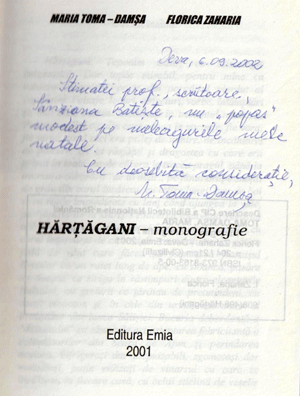 MARIA TOMA - DAMŞA FLORICA ZAHARIA
Deva, 6.09.2002
Stimatei prof., scriitoare,
Sânziana Batişte, un "popas"
modest pe meleagurile mele
natale.
Cu deosebită consideraţie,
M. Toma-Damşa
HĂRŢĂGANI - monografie
Editura Emia
2001